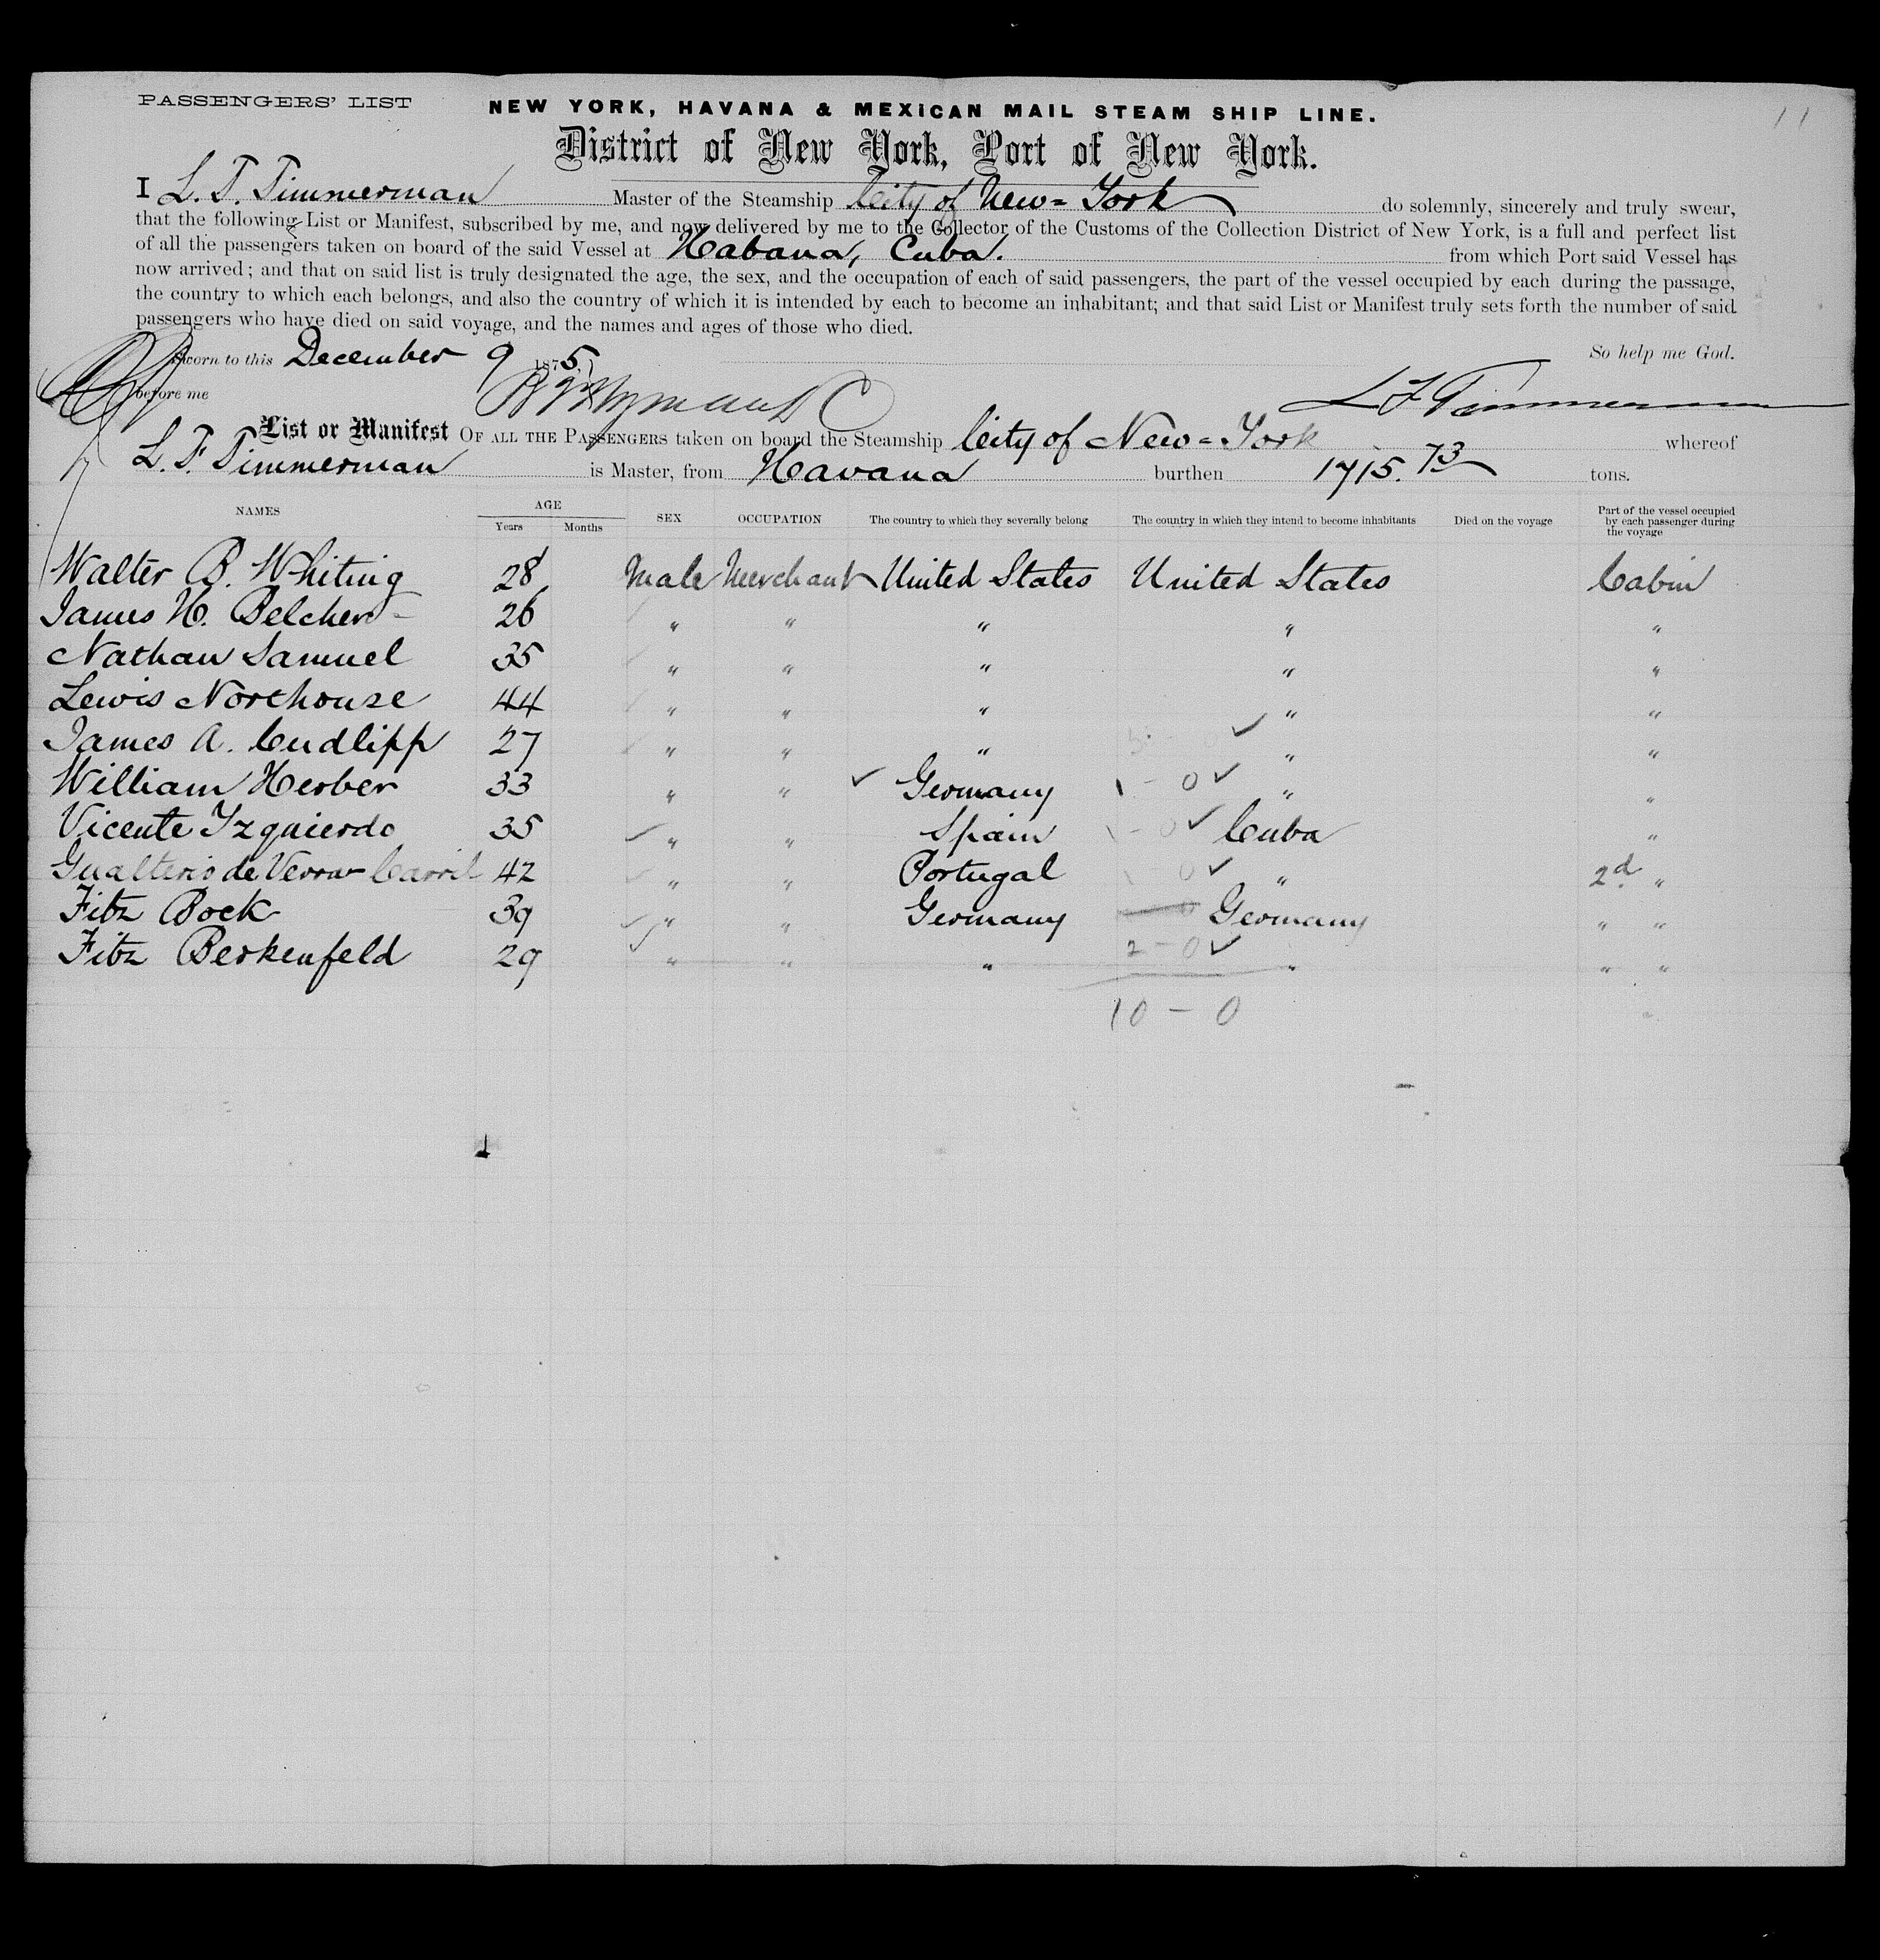 PASSENGERS' LIST
11
NEW YORK, HAVANA & MEXICAN MAIL STEAM SHIP LINE.
District of New York, Port of New York.
I L. F. Timmerman Master of the Steamship City of New=York do solemnly, sincerely and truly swear,
that the following List or Manifest, subscribed by me, and now delivered by me to the Collector of the Customs of the Collection District of New York, is a full and perfect list
of all the passengers taken on board of the said Vessel at Habana, Cuba. from which Port said Vessel has
now arrived; and that on said list is truly designated the age, the sex, and the occupation of each of said passengers, the part of the vessel occupied by each during the passage,
the country to which each belongs, and also the country of which it is intended by each to become an inhabitant; and that said List or Manifest truly sets forth the number of said
passengers who have died on said voyage, and the names and ages of those who died.
Sworn to this December 9 1875 So help me God.
before me L F Timmerman
List or Manifest OF ALL THE PASSENGERS taken on board the Steamship City of New=York whereof
L. F. Timmerman is Master, from Havana burthen 1715.73 tons.
NAMES AGE Years Months SEX OCCUPATION The country to which they severally belong The country in which they intend to become inhabitants Died on the voyage Part of the vessel occupied by each passenger during the voyage
Walter B. Whiting 28 Male Merchant United States United States Cabin
James H. Belcher 26 " " " " "
Nathan Samuel 35 " " " " "
Lewis Northouse 44 " " " " "
James A. Cudlipp 27 " " " " "
William Herber 33 " " Germany 1 - 0 " "
Vicente Izquierdo 35 " " Spain 1 - 0 Cuba "
Gualterio de 42 " " Portugal 0 " 2d "
Fitz Bock 39 " " Germany Germany " "
Fitz Berkenfeld 29 " " " 2 - 0 " " "
10 - 0